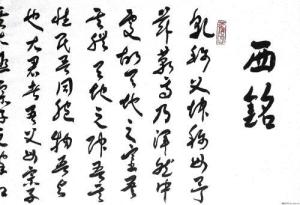 西銘
乾称父坤称母予
茲藐焉乃渾然中
處故天地之塞吾
其體天地之帥吾其
性民吾同胞物吾与
也大君者吾父母宗子